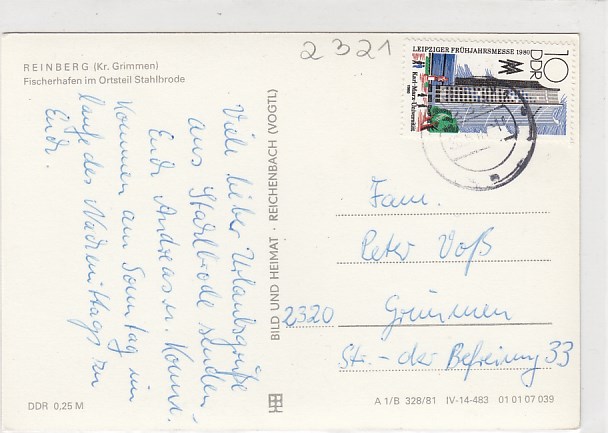 REINBERG (Kr. Grimmen)
Fischerhafen im Ortsteil Stahlbrode
2321
LEIPZIGER FRÜHJAHRSMESSE 1980
10
DDR
Karl-Marx-Universität
1980
Viele liebe Urlaubsgrüße
aus Stahlbrode senden
Euch Andreas u. Konni.
Kommen am Sonntag im
Laufe des Nachmittags zu
Euch.
BILD UND HEIMAT · REICHENBACH (VOGTL)
Fam.
Peter Voß
2320 Grimmen
Str. der Befreiung 33
DDR 0,25 M
A 1/B 328/81 IV-14-483 01 01 07 039